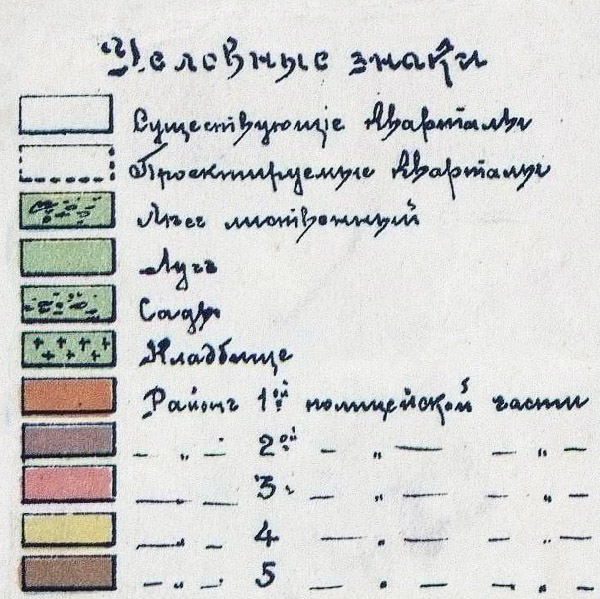 Условные знаки
Существующіе кварталы
Проектируемые кварталы
Лѣсъ лиственный
Лугъ
Садъ
Кладбище
Районъ 1ой полицейской части
— „ — 2ой — „ — — „ —
— „ — 3 — „ — — „ —
— „ — 4 — „ — — „ —
— „ — 5 — „ — — „ —